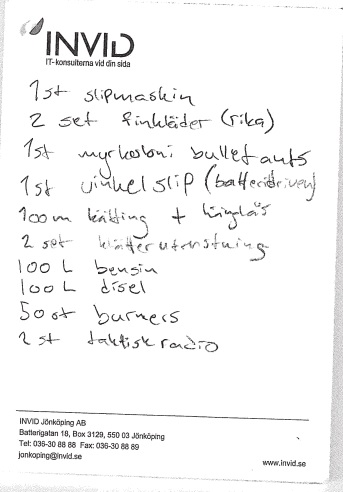 INVID
IT-konsulterna vid din sida
1st slipmaskin
2 set finkläder (rika)
1st myrkoloni bullet ants
1st vinkelslip (batteridriven)
100m kätting + hänglås
2 set klätterutrustning
100 L bensin
100 L disel
50st burners
2 st taktisk radio
INVID Jönköping AB
Batterigatan 18, Box 3129, 550 03 Jönköping
Tel: 036-30 88 88 Fax: 036-30 88 89
jonkoping@invid.se
www.invid.se